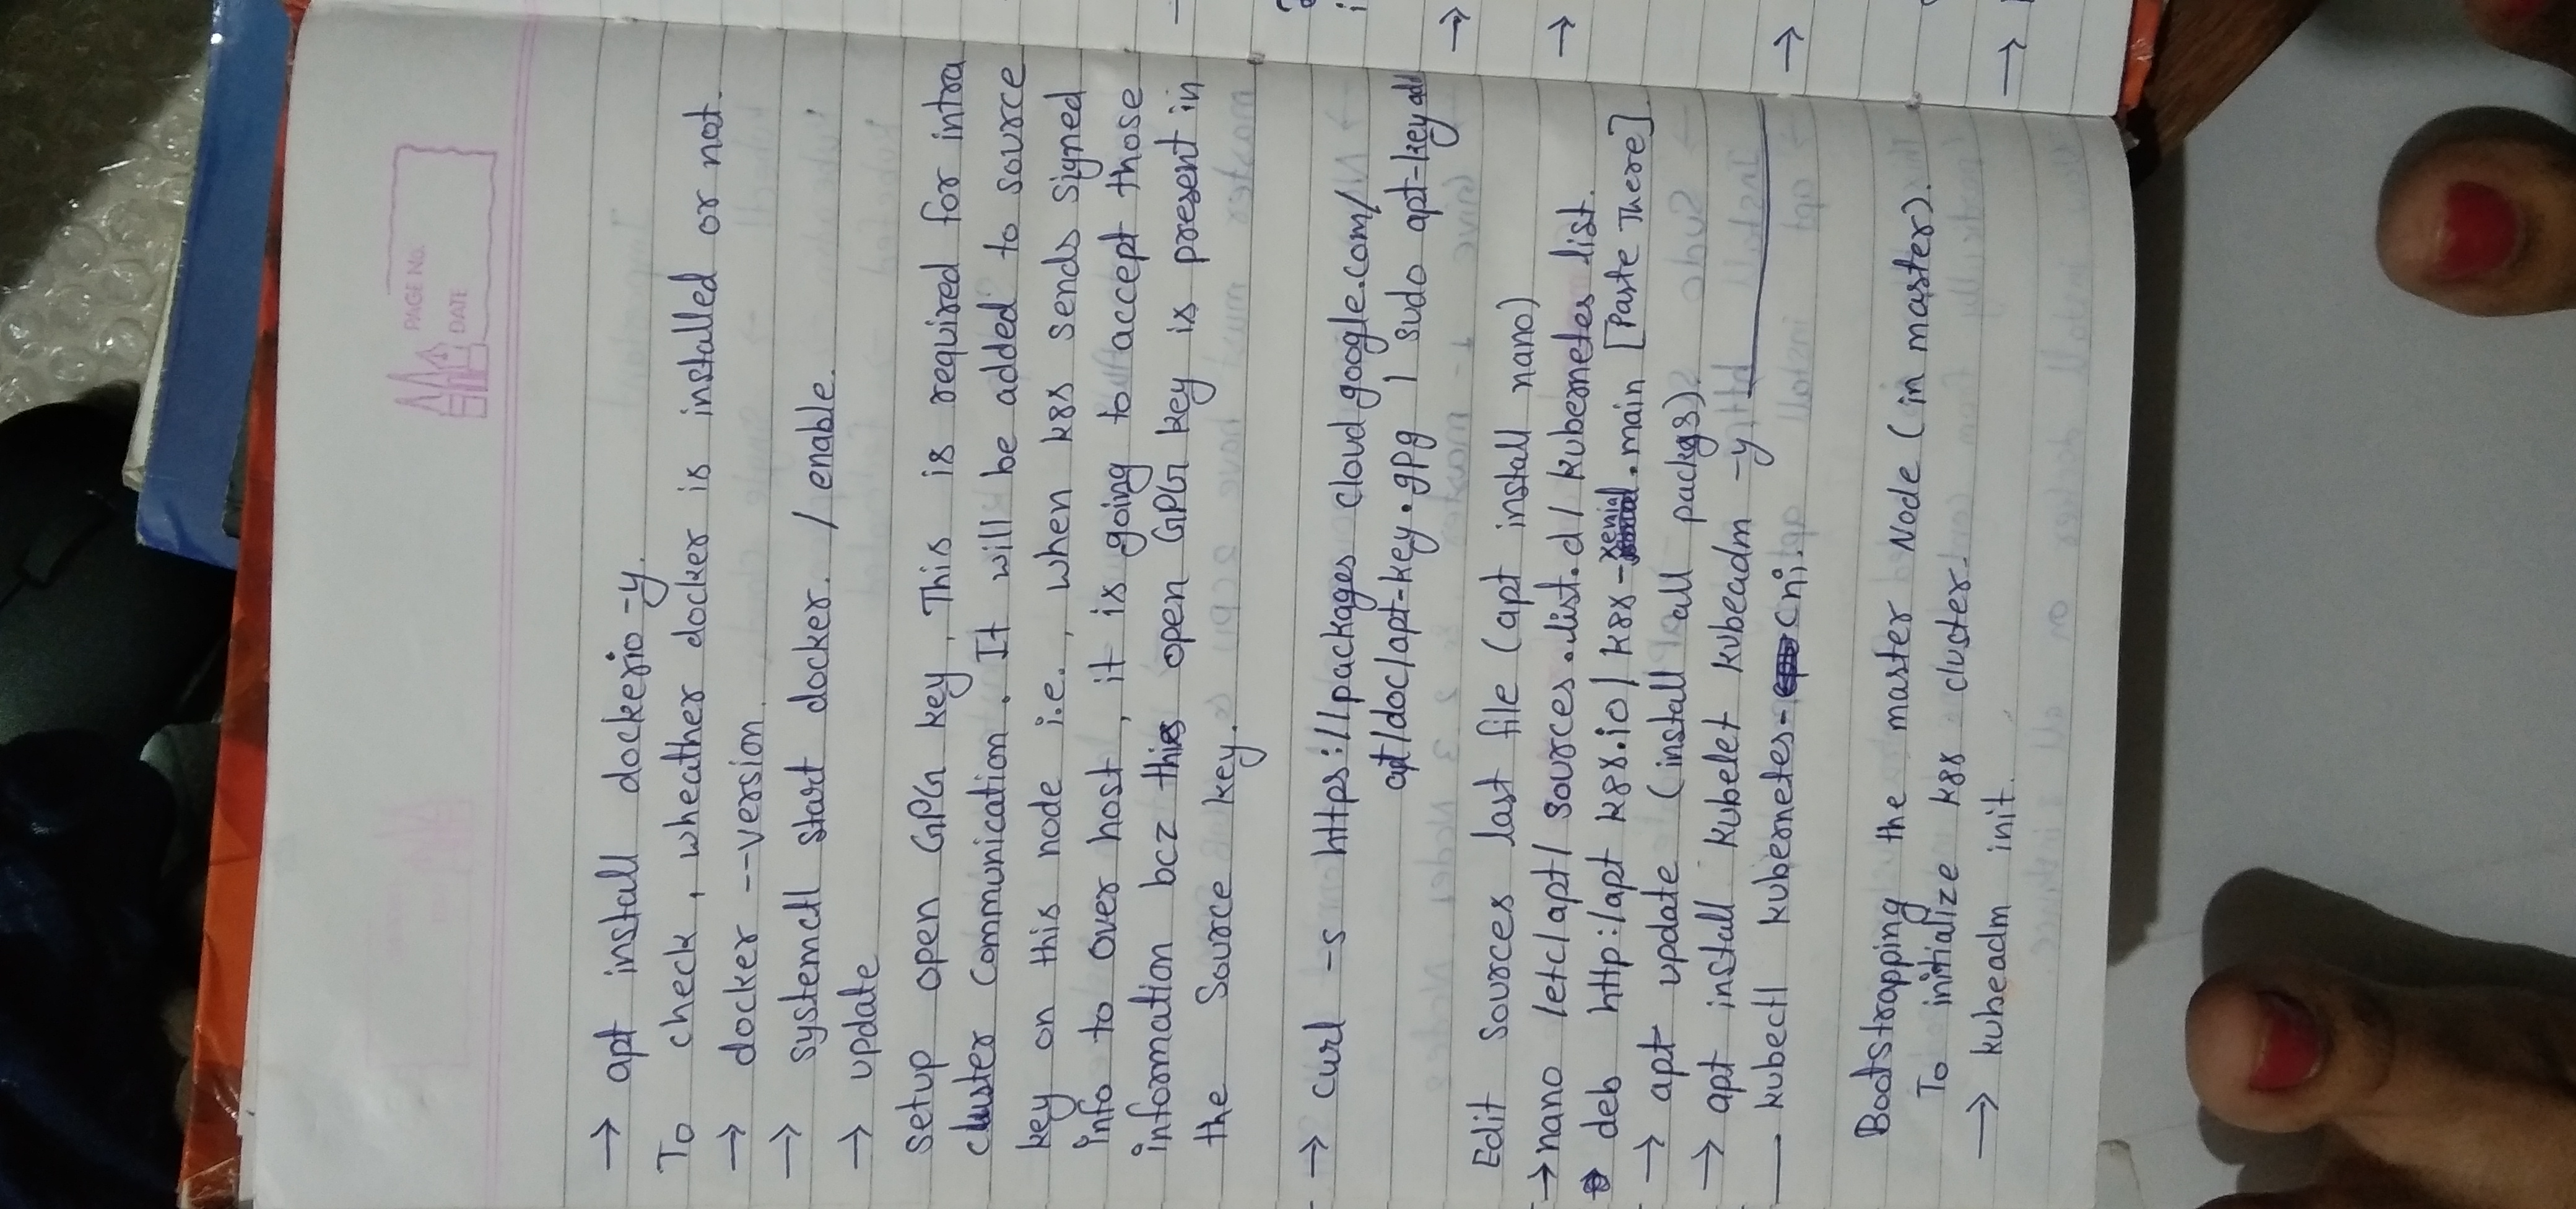 PAGE No.
DATE
→ apt install dockerio -y.
To check, wheather docker is installed or not.
→ docker --version.
→ systemctl start docker. / enable.
→ update
setup open GPG key, This is required for intra
cluster communication. It will be added to source
key on this node i.e., when k8s sends signed
info to over host, it is going to accept those
information bcz this open GPG key is present in
the Source key.
→ curl -s https://packages cloud google.com/
apt/doc/apt-key.gpg | sudo apt-key add
Edit sources last file (apt install nano)
→ nano /etc/apt/ sources.list.d/ kubernetes list.
deb http:/apt k8s.io/ k8s-xenial.main [Paste There]
→ apt update (install all packgs).
→ apt install kubelet kubeadm -y
kubectl kubernetes-cni.
Bootstrapping the master Node (in master).
To initialize k8s cluster.
→ kubeadm init.